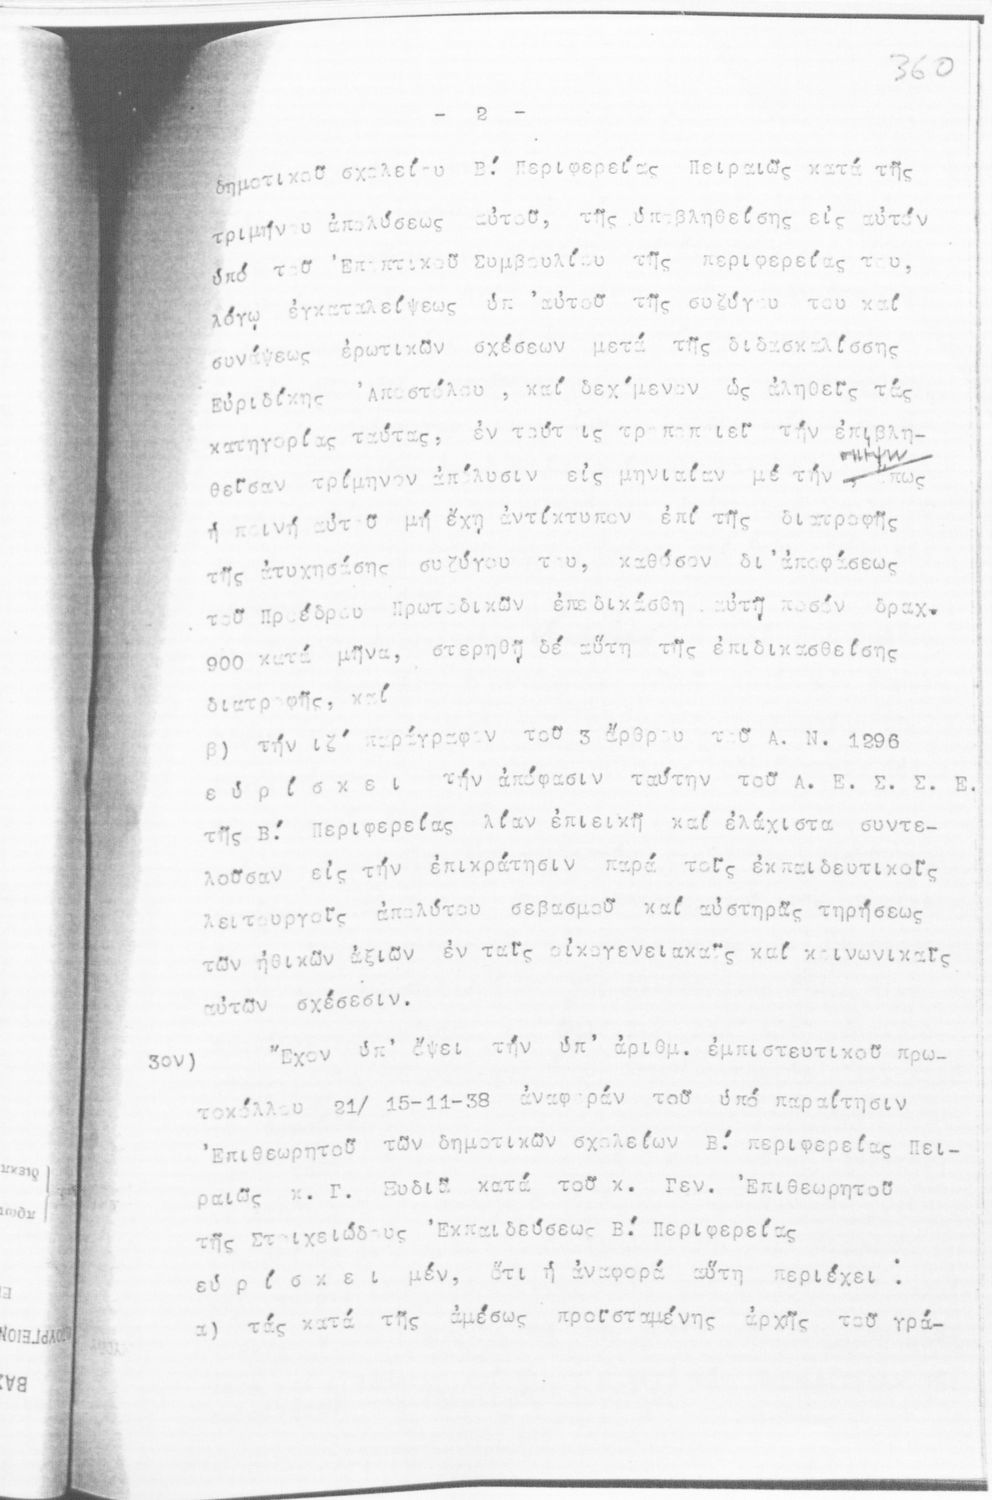 360
- 2 -
δημοτικοῦ σχολείου Β΄. Περιφερείας Πειραιῶς κατά τῆς
τριμήνου ἀπολύσεως αὐτοῦ, τῆς ὑποβληθείσης εἰς αὐτόν
ὑπό τοῦ Ἐποπτικοῦ Συμβουλίου τῆς περιφερείας του,
λόγῳ ἐγκαταλείψεως ὑπ' αὐτοῦ τῆς συζύγου του καί
συνάψεως ἐρωτικῶν σχέσεων μετά τῆς διδασκαλίσσης
Εὐριδίκης Ἀποστόλου , καί δεχόμενον ὡς ἀληθεῖς τάς
κατηγορίας ταύτας, ἐν τούτοις τροποποιεῖ τήν ἐπιβλη-
θεῖσαν τρίμηνον ἀπόλυσιν εἰς μηνιαίαν μέ τήν , ὅπως
ἡ ποινή αὐτοῦ μή ἔχῃ ἀντίκτυπον ἐπί τῆς διατροφῆς
τῆς ἀτυχησάσης συζύγου του, καθόσον δι' ἀποφάσεως
τοῦ Προέδρου Πρωτοδικῶν ἐπεδικάσθη αὐτῇ ποσόν δραχ.
900 κατά μῆνα, στερηθῇ δέ αὕτη τῆς ἐπιδικασθείσης
διατροφῆς, καί
β) τήν ιζ΄ παράγραφον τοῦ 3 ἄρθρου τοῦ Α. Ν. 1296
ε ὑ ρ ί σ κ ε ι τήν ἀπόφασιν ταύτην τοῦ Α. Ε. Σ. Σ. Ε.
τῆς Β΄. Περιφερείας λίαν ἐπιεικῆ καί ἐλάχιστα συντε-
λοῦσαν εἰς τήν ἐπικράτησιν παρά τοῖς ἐκπαιδευτικοῖς
λειτουργοῖς ἀπολύτου σεβασμοῦ καί αὐστηρᾶς τηρήσεως
τῶν ἠθικῶν ἀξιῶν ἐν ταῖς οἰκογενειακαῖς καί κοινωνικαῖς
αὐτῶν σχέσεσιν.
3ον) Ἔχον ὑπ' ὄψει τήν ὑπ' ἀριθμ. ἐμπιστευτικοῦ πρω-
τοκόλλου 21/ 15-11-38 ἀναφοράν τοῦ ὑπό παραίτησιν
Ἐπιθεωρητοῦ τῶν δημοτικῶν σχολείων Β΄. περιφερείας Πει-
ραιῶς κ. Γ. Ξυδιᾶ κατά τοῦ κ. Γεν. Ἐπιθεωρητοῦ
τῆς Στοιχειώδους Ἐκπαιδεύσεως Β΄. Περιφερείας
εὑ ρ ί σ κ ε ι μέν, ὅτι ἡ ἀναφορά αὕτη περιέχει :
α) τάς κατά τῆς ἀμέσως προϊσταμένης ἀρχῆς τοῦ γρά-